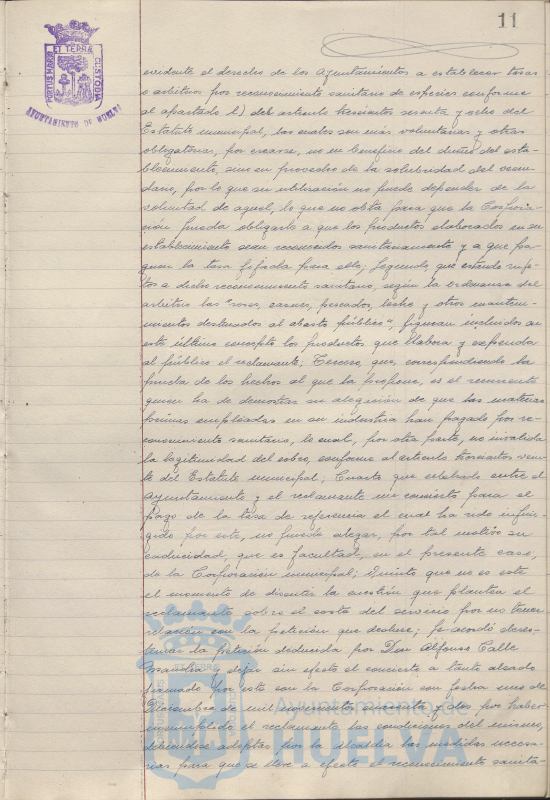 11
PORTUS MARIS ET TERRÆ CUSTODIA
AYUNTAMIENTO DE HUELVA
evidente el derecho de los Ayuntamientos a establecer tasas
o arbitrios por reconocimiento sanitario de especies conforme
al apartado l) del artículo trescientos sesenta y ocho del
Estatuto municipal, las cuales son más voluntarias y otras
obligatorias, por crearse, no en beneficio del dueño del esta-
blecimiento, sino en provecho de la salubridad del vecin-
dario, por lo que su utilización no puede depender de la
voluntad de aquel, lo que no obsta para que la Corpora-
ción pueda obligarlo a que los productos elaborados en su
establecimiento sean reconocidos sanitariamente y a que pa-
guen la tasa fijada para ello; Segundo, que estando suje-
tos a dicho reconocimiento sanitario, según la ordenanza del
arbitrio las "reses, carnes, pescados, leche y otros manteni-
mientos destinados al abasto público", figuran incluidos en
este último concepto los productos que elabora y expende
al público el reclamante; Tercero, que, correspondiendo la
prueba de los hechos al que la propone, es el recurrente
quien ha de demostrar su alegación de que las materias
primas empleadas en su industria han pagado por re-
conocimiento sanitario, lo cual, por otra parte, no invalida
la legitimidad del cobro, conforme al artículo trescientos vein-
te del Estatuto municipal; Cuarto que celebrado entre el
Ayuntamiento y el reclamante un concierto para el
pago de la tasa de referencia el cual ha sido infrin-
gido por este, no puede alegar, por tal motivo su
caducidad, que es facultad, en el presente caso,
de la Corporación municipal; Quinto que no es este
el momento de discutir la cuestión que plantea el
reclamante sobre el costo del servicio por no tener
relación con la petición que deduce; Se acordó deses-
timar la petición deducida por Don Alfonso Calle
y dejar sin efecto el concierto a tanto alzado
firmado por este con la Corporación con fecha uno de
Diciembre de mil novecientos cuarenta y dos por haber
incumplido el reclamante las condiciones del mismo,
debiéndose adoptar por la Alcaldía las medidas necesa-
rias para que se lleve a efecto el reconocimiento sanita-
Ayuntamiento
HUELVA